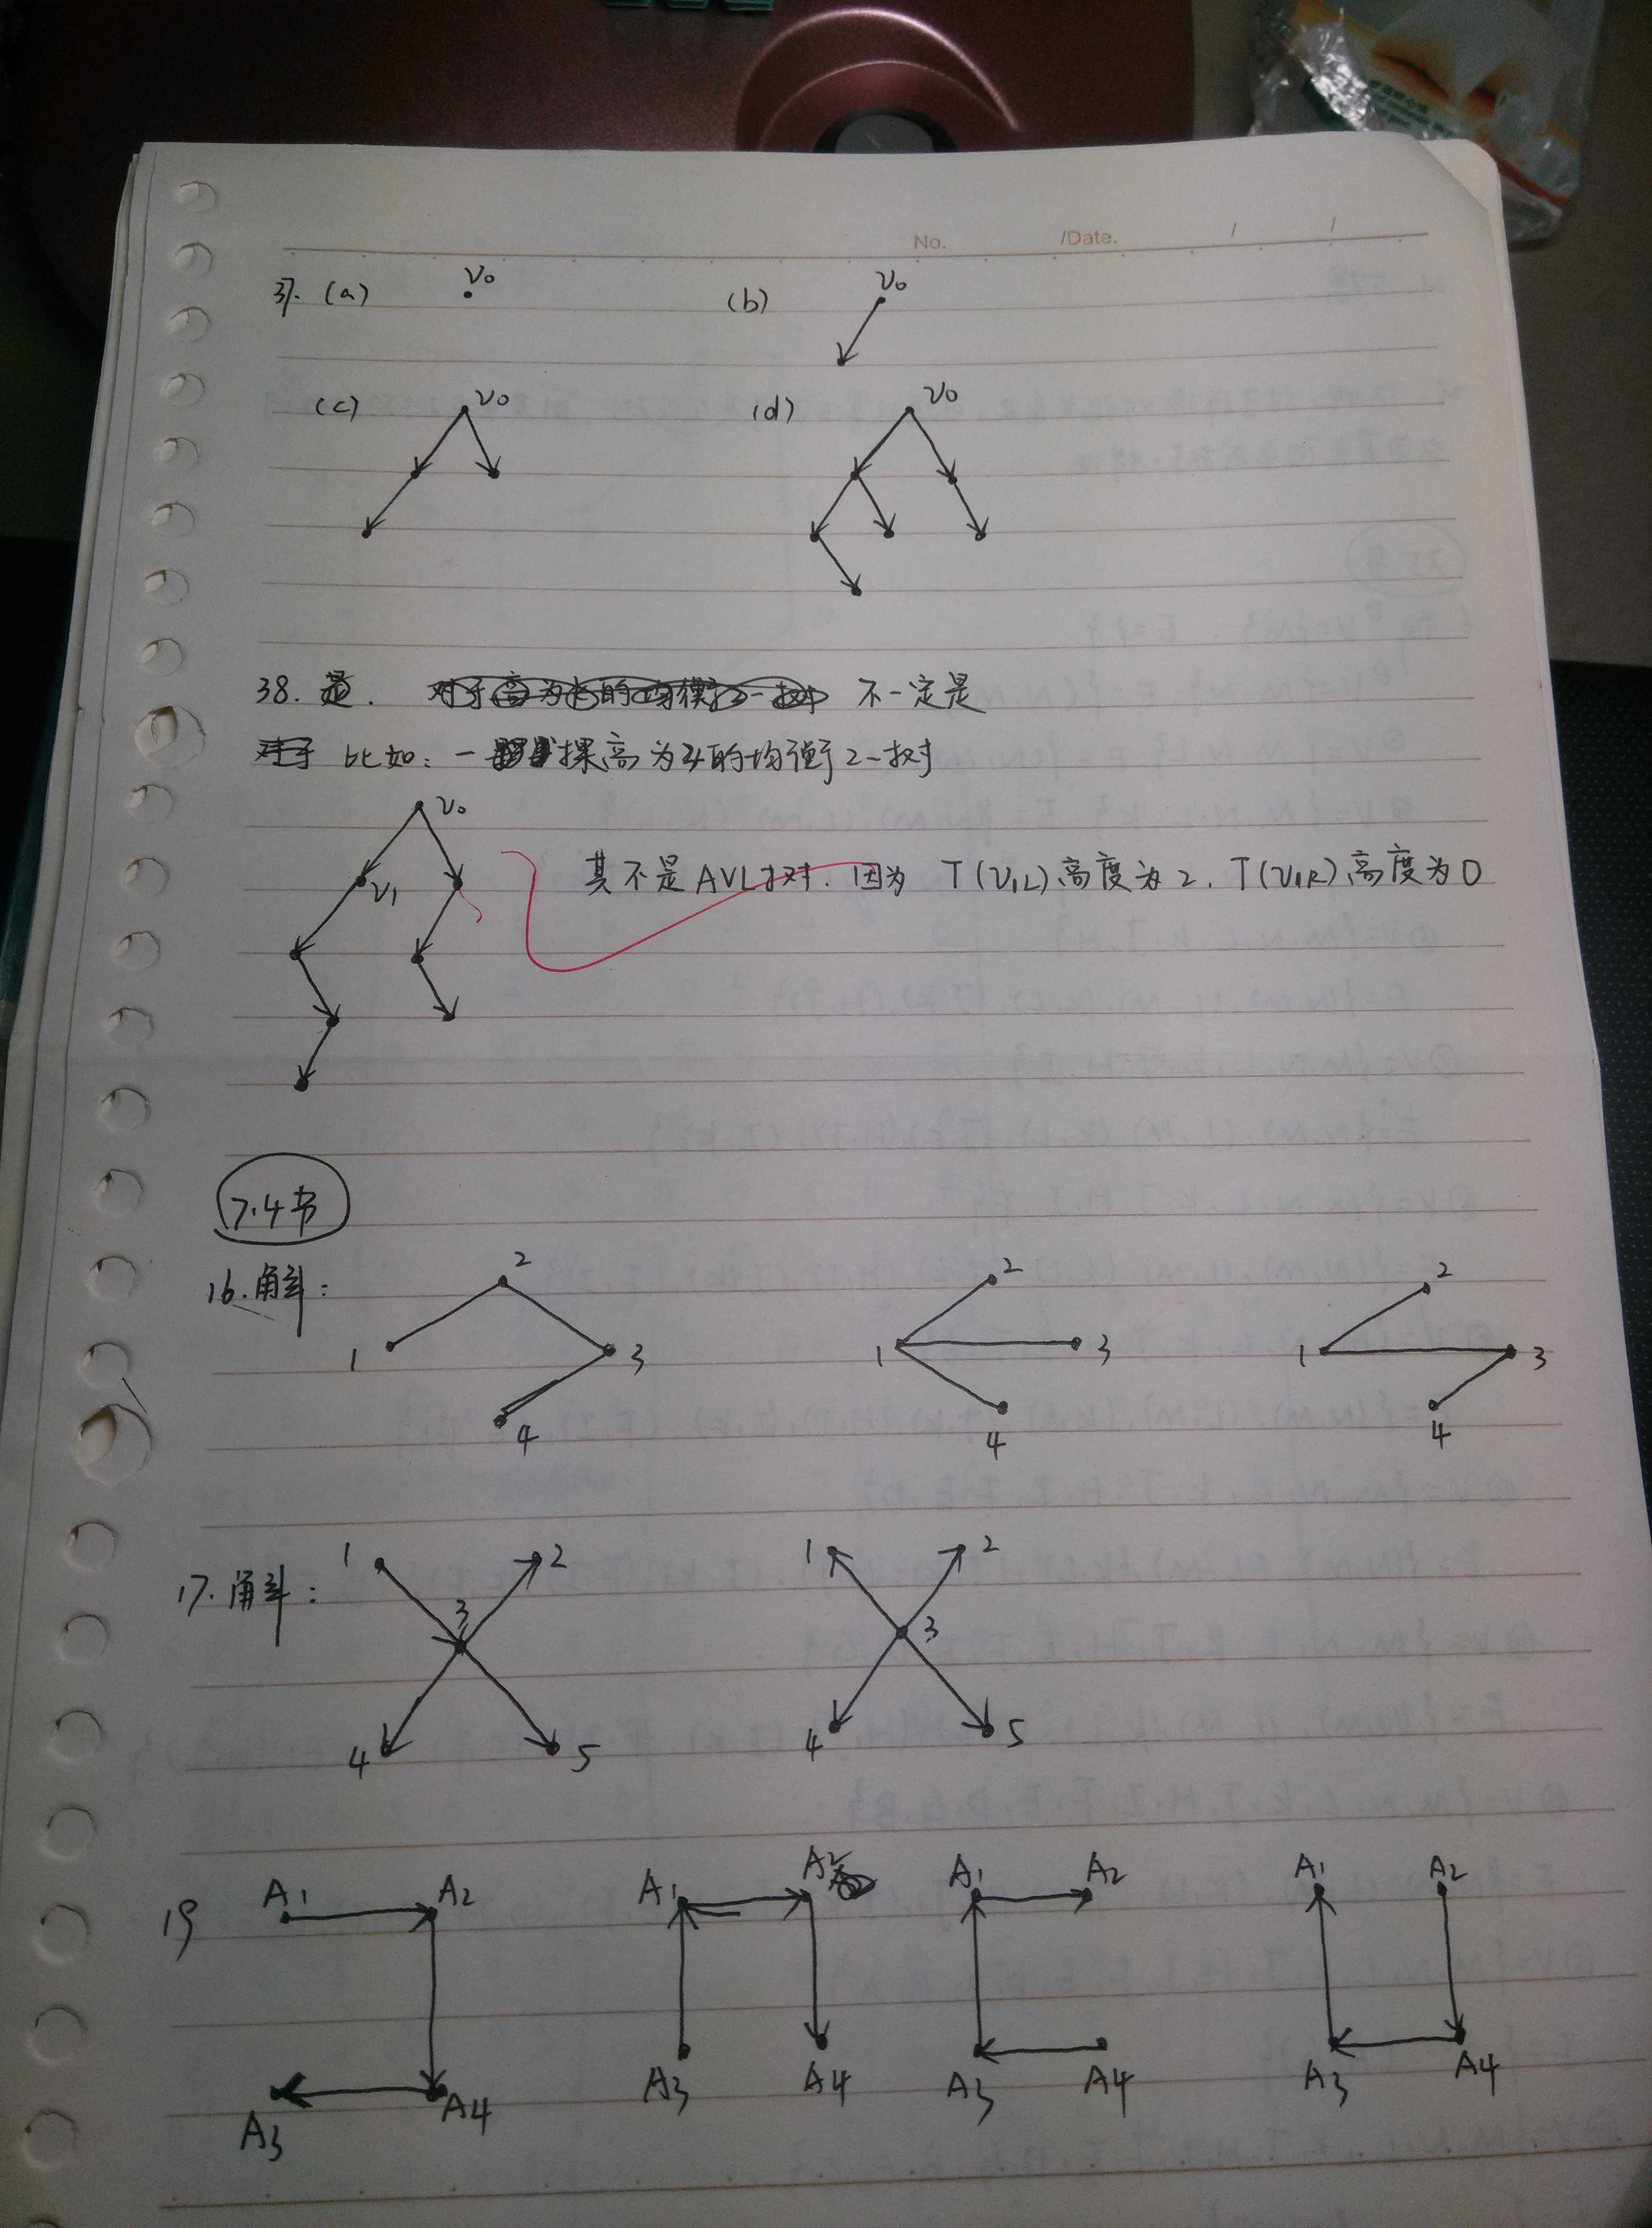 No. /Date. / /
37. (a) v₀ (b) v₀
(c) v₀ (d) v₀
38. 是. 不一定是
比如: 一棵高为4的均衡2-树
v₀
v₁
其不是AVL树. 因为 T(v₁L)高度为2, T(v₁R)高度为0
7.4节
16.解:
2 2 2
1 3 1 3 1 3
4 4 4
17.解:
1 2 1 2
3 3
4 5 4 5
19
A₁ A₂ A₁ A₂ A₁ A₂ A₁ A₂
A₃ A₄ A₃ A₄ A₃ A₄ A₃ A₄